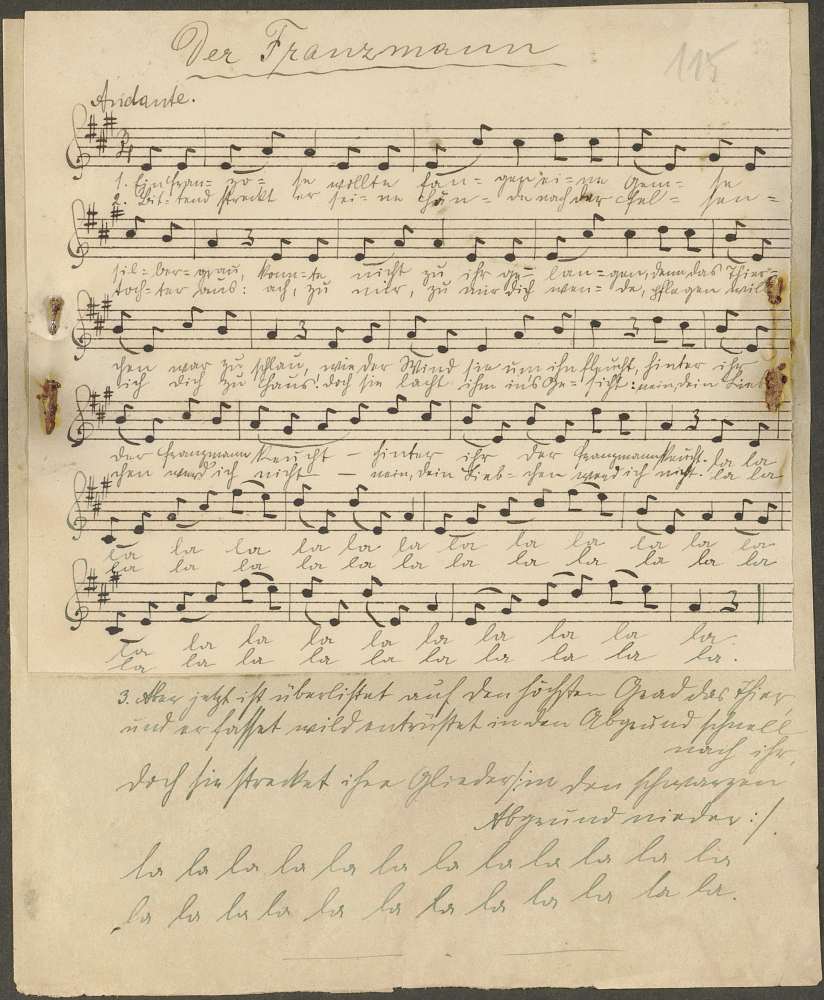 Der Franzmann
115
Andante.
1. Ein Fran= zo= se wollte fan= gen ei= ne Gem= se
2. Bit= tend streckt er sei= ne Hän= de nach der Fel= sen=
sil= ber= grau, konn= te nicht zu ihr ge= lan= gen, denn das Thier=
toch= ter aus: ach, zu mir, zu mir dich wen= de, pflegen will
chen war zu schlau, wie der Wind sie um ihn fleucht, hinter ihr
ich dich zu Haus! doch sie lacht ihm ins Ge= sicht: nein, dein Lieb
der Franzmann keucht – hinter ihr der Franzmann keucht. la la
chen werd ich nicht – nein, dein Lieb= chen werd ich nicht. la la
la la la la la la la la la la la la la
la la la la la la la la la la la la la
la la la la la la la la la la.
la la la la la la la la la la.
3. Aber jetzt ist überlistet auf den höchsten Grad das Thier
und er fasset wild entrüstet in den Abgrund schnell
nach ihr,
doch sie strecket ihre Glieder /: in den schwarzen
Abgrund nieder :/
la la la la la la la la la la la la
la la la la la la la la la la la la.